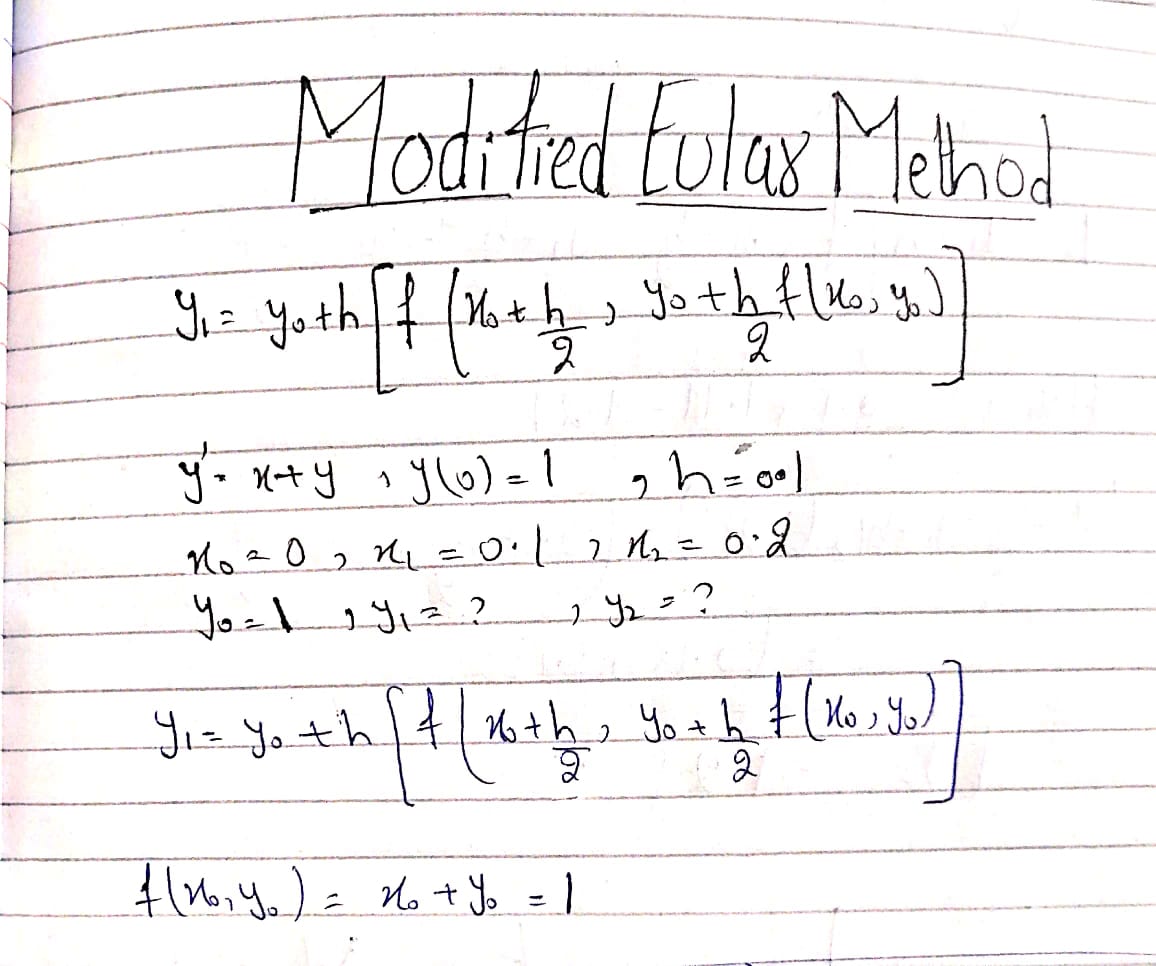 Modified Eular Method
y₁ = y₀ + h [f (x₀ + h/2 , y₀ + h/2 f(x₀, y₀)]
y' = x + y , y(0) = 1 , h = 0.1
x₀ = 0 , x₁ = 0.1 , x₂ = 0.2
y₀ = 1 , y₁ = ? , y₂ = ?
y₁ = y₀ + h [f (x₀ + h/2 , y₀ + h/2 f(x₀, y₀)]
f(x₀, y₀) = x₀ + y₀ = 1